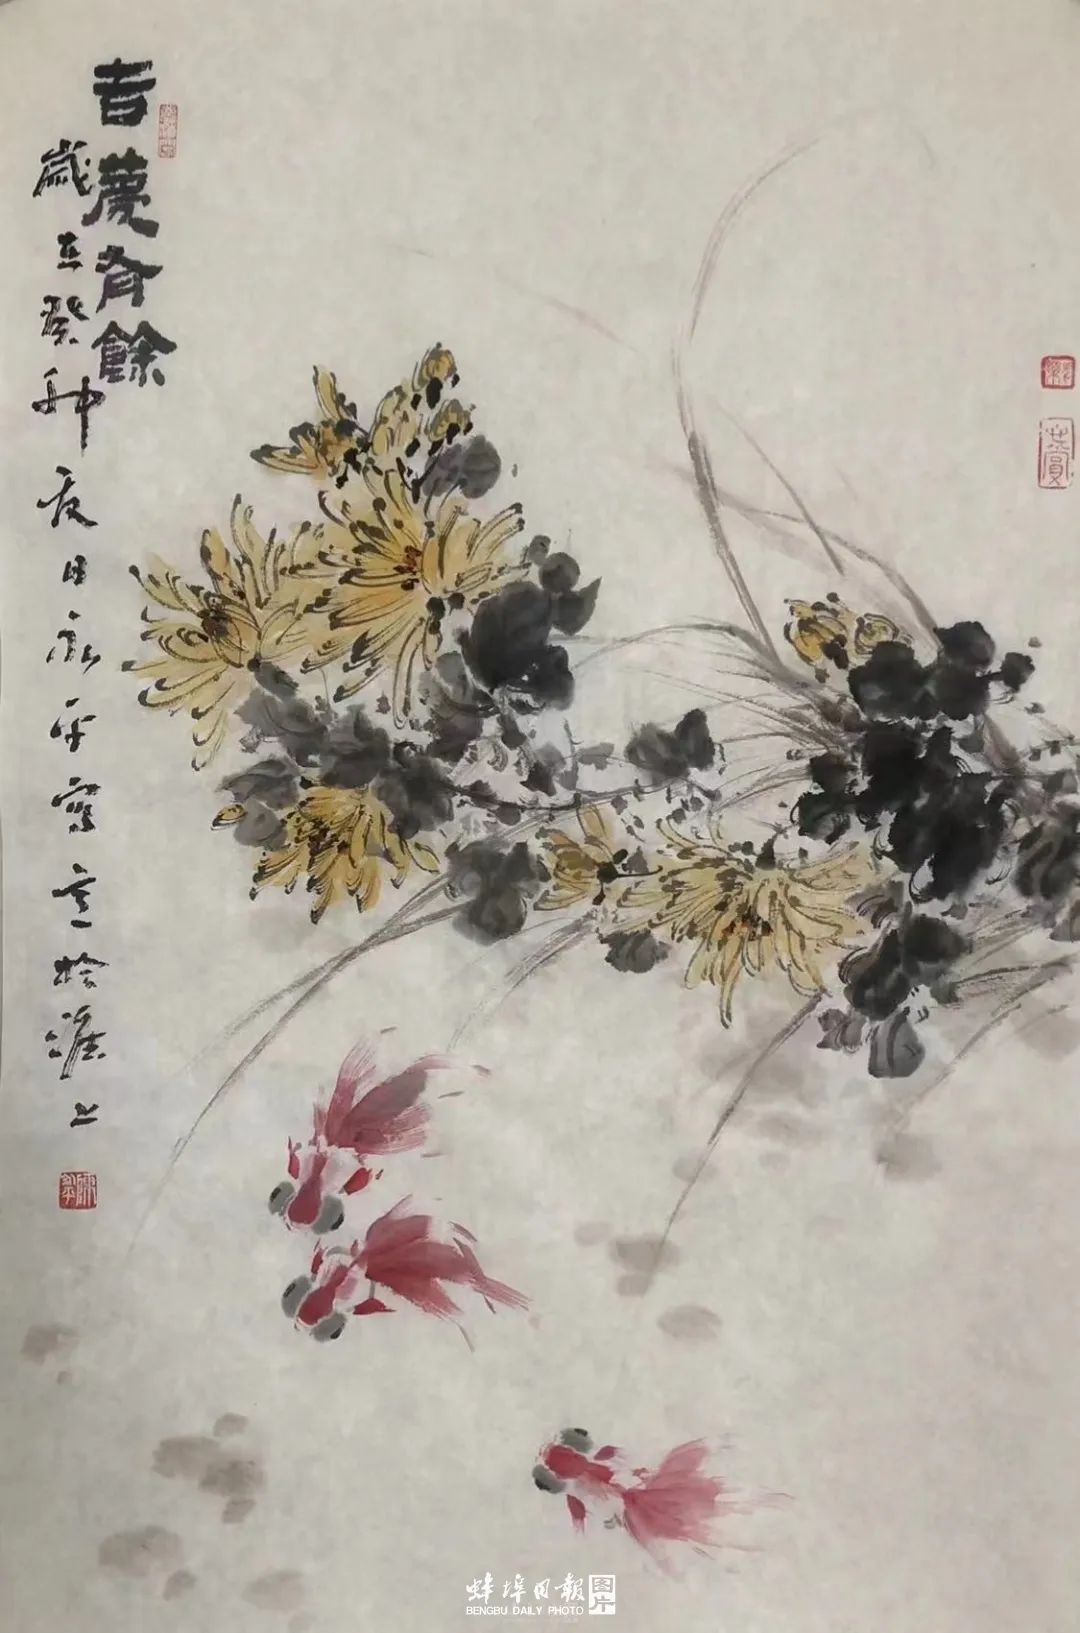 吉慶有餘
歲在癸卯夏日永平寫意於淮上
蚌埠日報 图片
BENGBU DAILY PHOTO